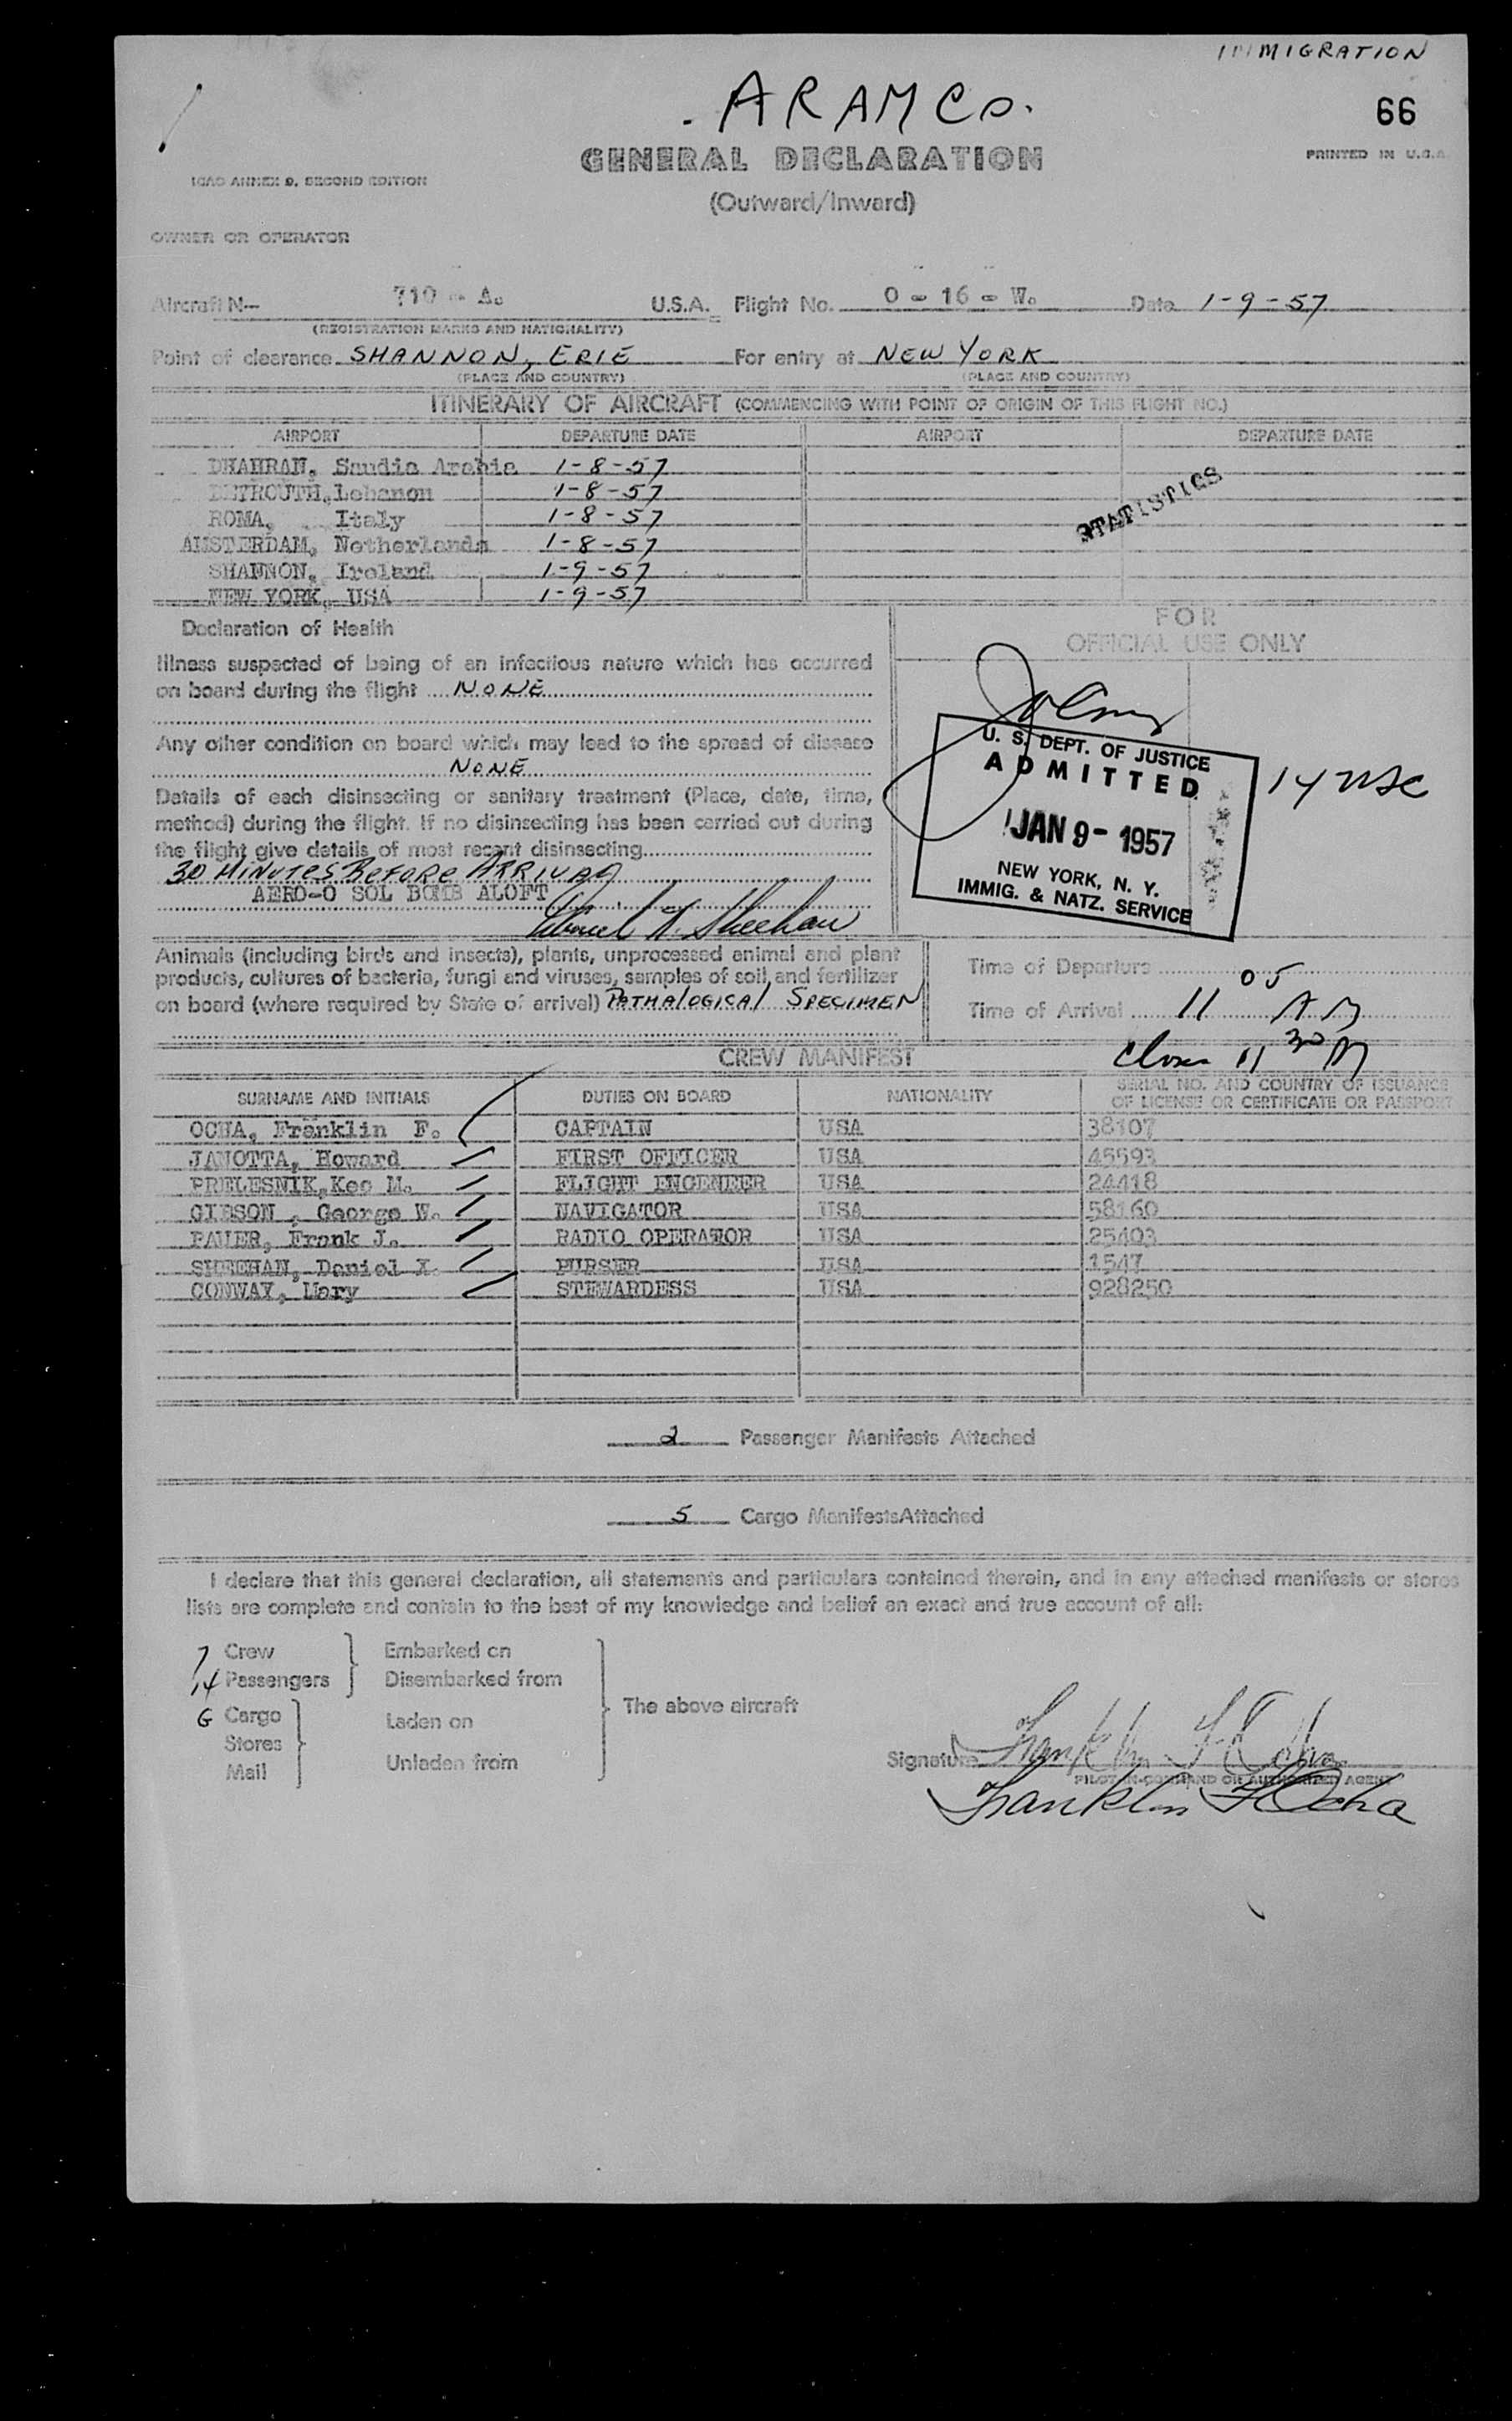 IMMIGRATION
ARAMCO.
66
GENERAL DECLARATION
PRINTED IN U.S.A.
ICAO ANNEX 9, SECOND EDITION
(Outward/Inward)
OWNER OR OPERATOR
Aircraft N— 710 - A. U.S.A. Flight No. 0 - 16 - W. Date 1-9-57
(REGISTRATION MARKS AND NATIONALITY)
Point of clearance SHANNON, ERIE For entry at NEW YORK
(PLACE AND COUNTRY) (PLACE AND COUNTRY)
ITINERARY OF AIRCRAFT (COMMENCING WITH POINT OF ORIGIN OF THIS FLIGHT NO.)
AIRPORT DEPARTURE DATE AIRPORT DEPARTURE DATE
DHAHRAN, Saudia Arabia 1-8-57
BEYROUTH, Lebanon 1-8-57
STATISTICS
ROMA, Italy 1-8-57
AMSTERDAM, Netherlands 1-8-57
SHANNON, Ireland 1-9-57
NEW YORK, USA 1-9-57
Declaration of Health
FOR
OFFICIAL USE ONLY
Illness suspected of being of an infectious nature which has occurred
on board during the flight NONE
Any other condition on board which may lead to the spread of disease
NONE
Details of each disinsecting or sanitary treatment (Place, date, time,
method) during the flight. If no disinsecting has been carried out during
the flight give details of most recent disinsecting
30 MINUTES BEFORE ARRIVAL
AERO-O SOL BOMB ALOFT
Daniel X. Sheehan
U. S. DEPT. OF JUSTICE
ADMITTED
JAN 9 - 1957
NEW YORK, N. Y.
IMMIG. & NATZ. SERVICE
14 USC
Animals (including birds and insects), plants, unprocessed animal and plant
products, cultures of bacteria, fungi and viruses, samples of soil and fertilizer
on board (where required by State of arrival) PATHALOGICAL SPECIMEN
Time of Departure
Time of Arrival 11 05 AM
Close 11 30 M
CREW MANIFEST
SURNAME AND INITIALS DUTIES ON BOARD NATIONALITY SERIAL NO. AND COUNTRY OF ISSUANCE
OF LICENSE OR CERTIFICATE OR PASSPORT
OCHA, Franklin F. CAPTAIN USA 38107
JANOTTA, Howard FIRST OFFICER USA 45593
PRELESNIK, Keo M. FLIGHT ENGENEER USA 24418
GIBSON, George W. NAVIGATOR USA 58160
PAUER, Frank J. RADIO OPERATOR USA 25403
SHEEHAN, Daniel X. PURSER USA 1547
CONWAY, Mary STEWARDESS USA 928250
2 Passenger Manifests Attached
5 Cargo ManifestsAttached
I declare that this general declaration, all statements and particulars contained therein, and in any attached manifests or stores
lists are complete and contain to the best of my knowledge and belief an exact and true account of all:
7 Crew Embarked on
14 Passengers Disembarked from
The above aircraft
G Cargo Laden on
Stores
Mail Unladen from
Signature Franklin F Ocha
PILOT-IN-COMMAND OR AUTHORIZED AGENT
Franklin F Ocha